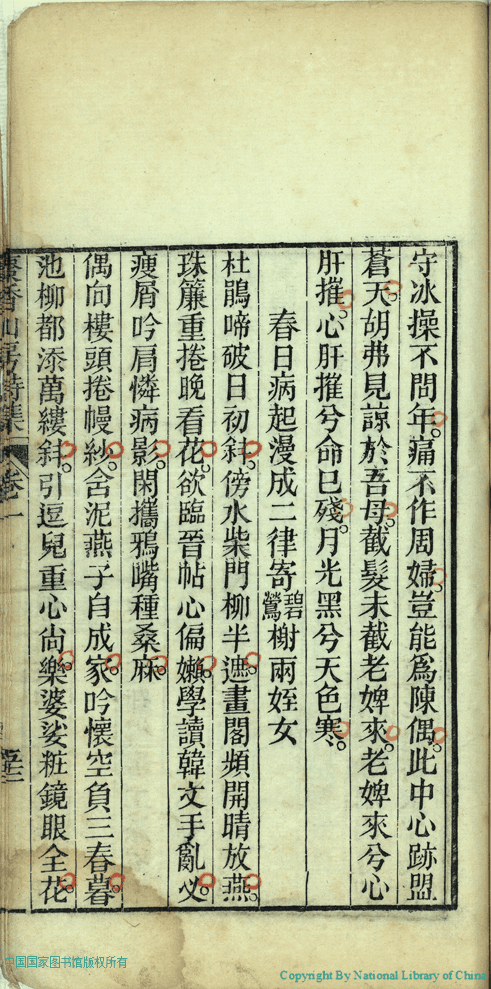 守冰操不問年。痛不作周婦。豈能爲陳偶。此中心跡盟
蒼天。胡弗見諒於吾母。截髮未截老婢來。老婢來兮心
肝摧。心肝摧兮命已殘。月光黑兮天色寒。
春日病起漫成二律寄碧鶯榭兩姪女
杜鵑啼破日初斜。傍水柴門柳半遮。畫閣頻開晴放燕。
珠簾重捲晚看花。欲臨晉帖心偏嬾。學讀韓文手亂叉。
瘦屑吟肩憐病影。閑攜鴉嘴種桑麻。
偶向樓頭捲幔紗。含泥燕子自成家。吟懷空負三春暮。
池柳都添萬縷斜。引逗兒童心尙樂。婆娑粧鏡眼全花。
香山房詩集 卷一
中国国家图书馆版权所有
Copyright By National Library of China